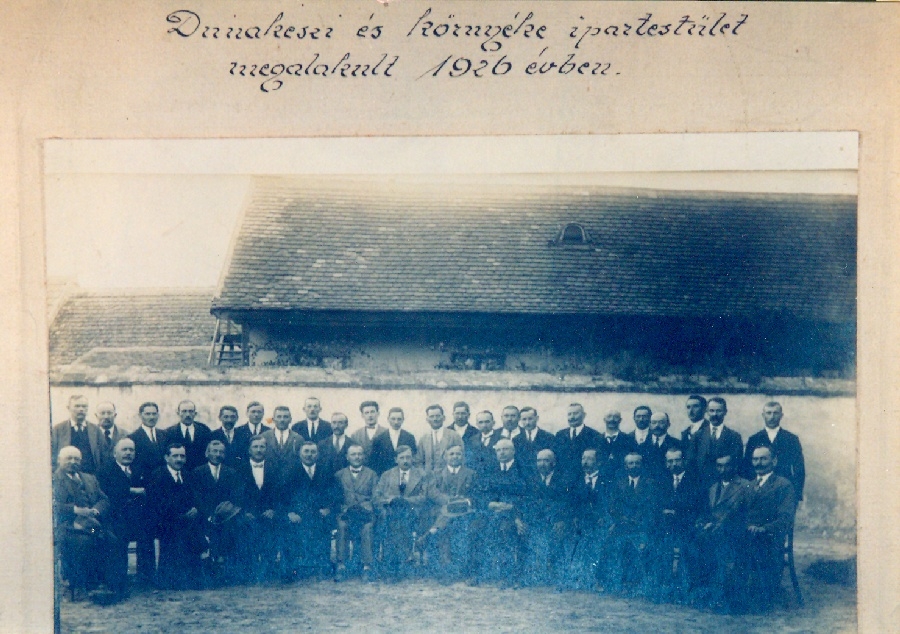 Dunakeszi és környéke ipartestület
megalakult 1926 évben.